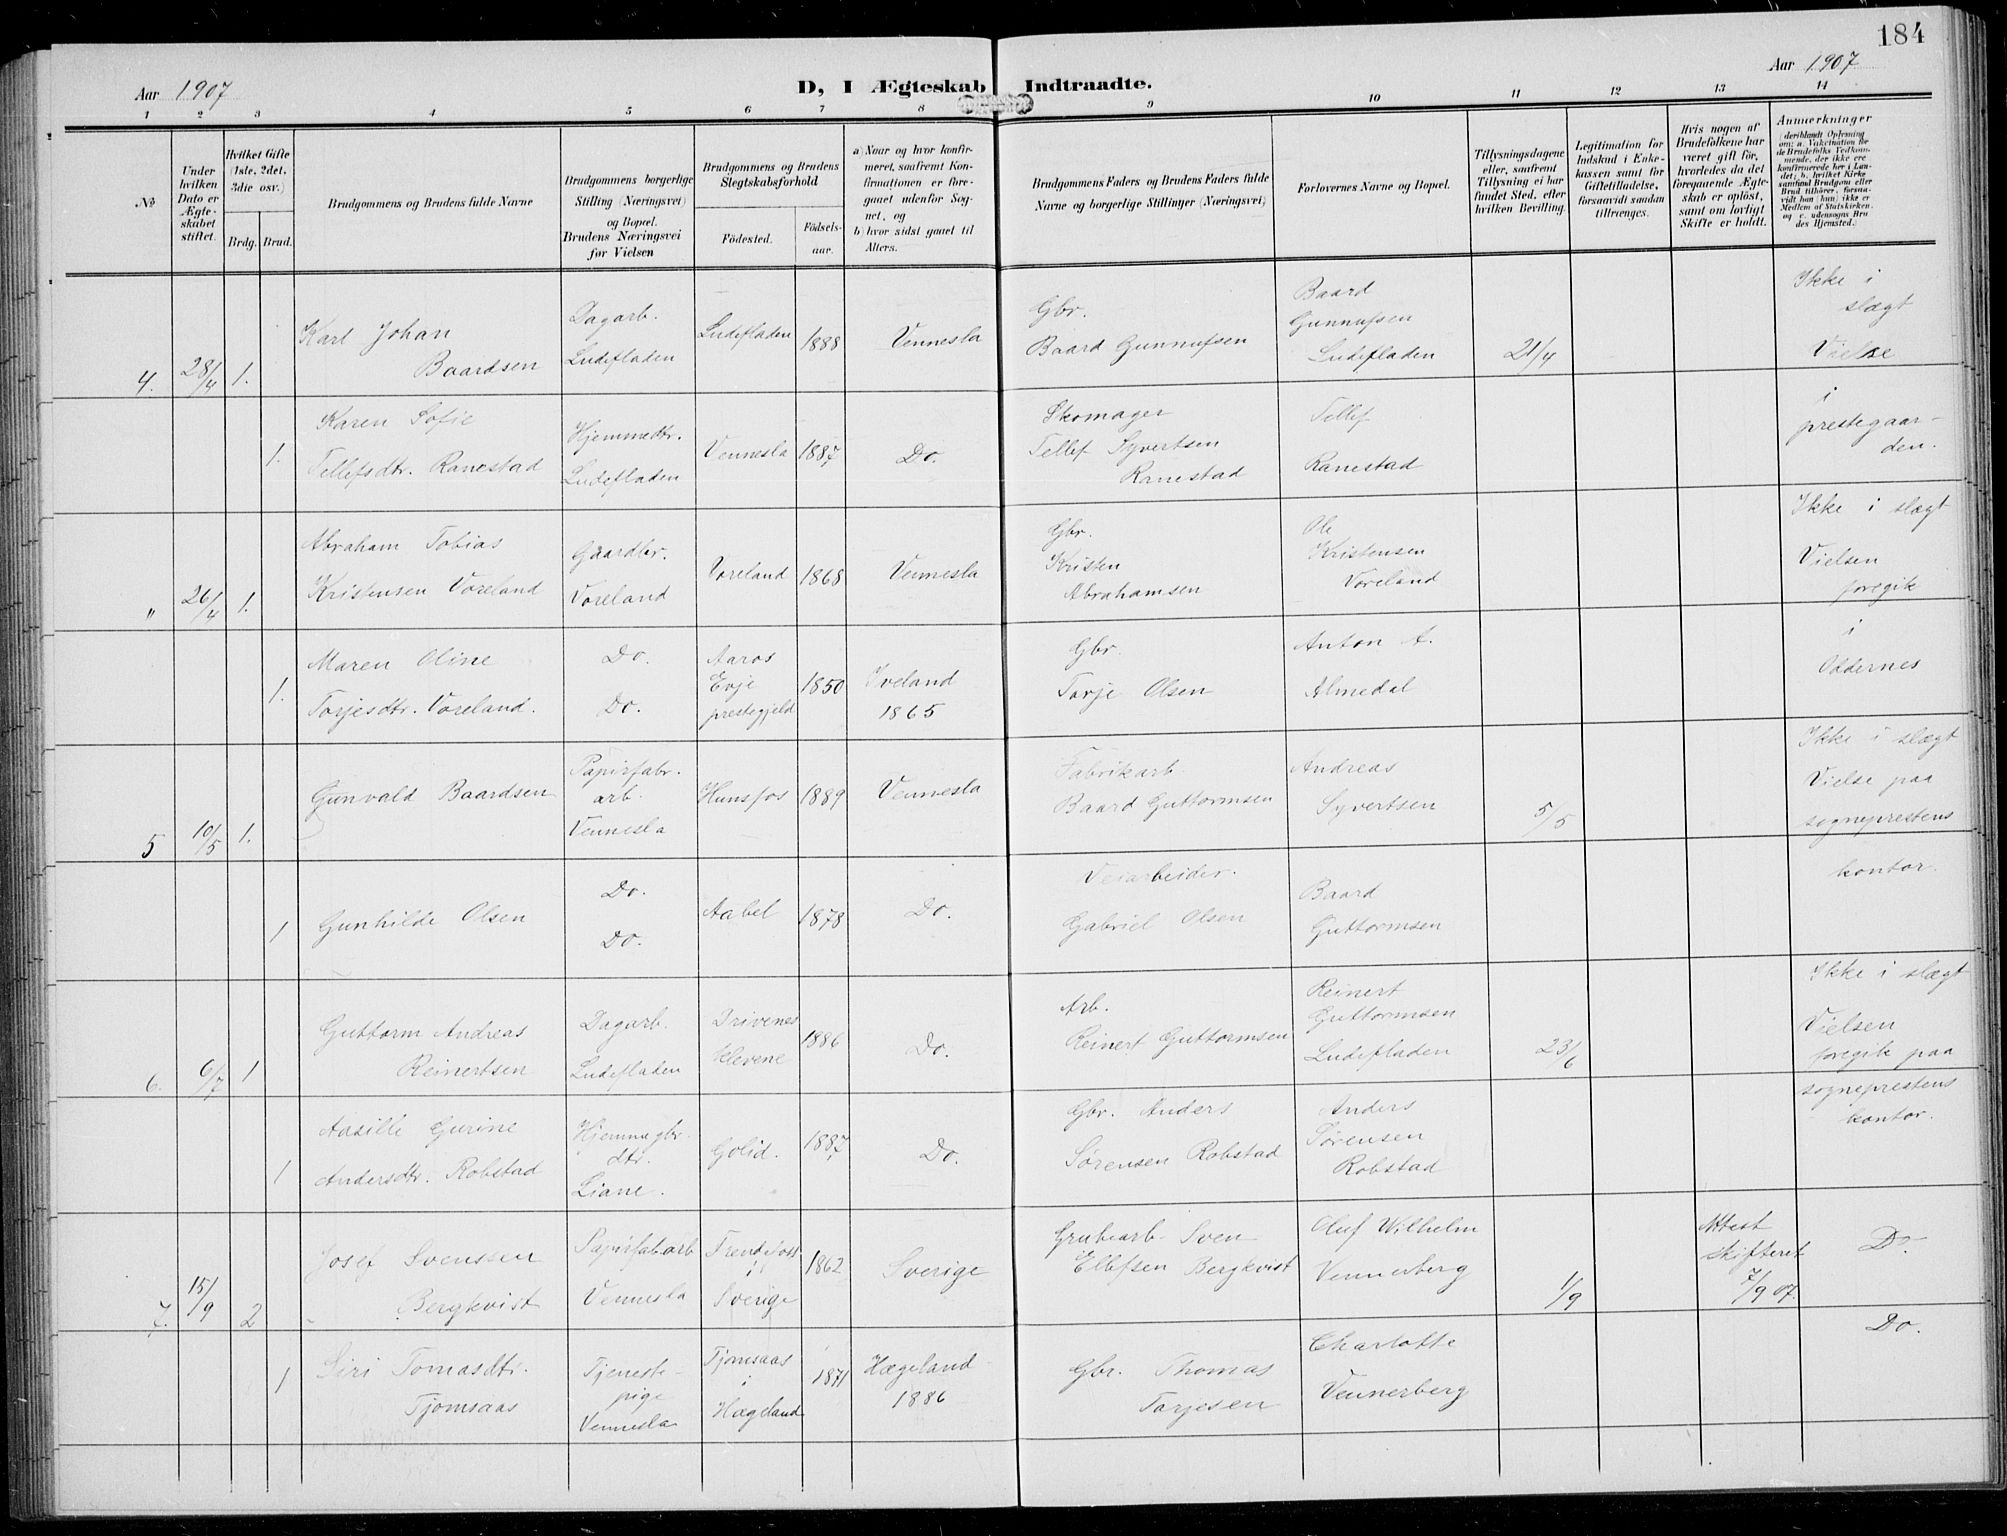 184
Aar 1907
D, I Ægteskab Indtraadte.
Aar 1907
1 2 3 4 5 6 7 8 9 10 11 12 13 14
No
Under hvilken Dato er Ægteskabet stiftet.
Hvilket Gifte (1ste, 2det, 3die osv.)
Brdg. Brud.
Brudgommens og Brudens fulde Navne
Brudgommens borgerlige Stilling (Næringsvei) og Bopæl. Brudens Næringsvei før Vielsen
Brudgommens og Brudens Slegtskabsforhold
Födested.
Födselsaar.
a) Naar og hvor konfirmeret, saafremt Konfirmationen er foregaaet udenfor Sognet, og
b) hvor sidst gaaet til Alters.
Brudgommens Faders og Brudens Faders fulde Navne og borgerlige Stillinger (Næringsvei)
Forlovernes Navne og Bopæl.
Tillysningsdagene eller, saafremt Tillysning ei har fundet Sted, efter hvilken Bevilling.
Legitimation for Indskud i Enkekassen samt for Giftetilladelse, forsaavidt saadan tiltrænges.
Hvis nogen af Brudefolkene har været gift før, hvorledes da det foregaaende Ægteskab er opløst, samt om lovligt Skifte er holdt.
Anmærkninger
4. 28/4 1.
Karl Johan
Baardsen
Dagarb.
Ludefladen
Ludefladen
1888
Vennesla
Gbr.
Baard Gunnufsen
Baard
Gunnufsen
Ludefladen
21/4
Ikke i
slægt
Vielse
1.
Karen Sofie
Tellefsdtr. Ranestad
Hjemmedtr.
Ludefladen
Vennesla
1887
Do.
Skomager
Tellef Syvertsen
Ranestad
Tellef
Ranestad
i
prestegaar-
den.
" 26/4 1.
Abraham Tobias
Kristensen Voreland
Gaardbr.
Voreland
Voreland
1868
Vennesla
Gbr.
Kristen
Abrahamsen
Ole
Kristensen
Voreland
Ikke i slægt
Vielsen
foregik
1.
Maren Oline
Torjesdtr. Voreland.
Do.
Do.
Aaros
Evje
prestegjeld
1850
Iveland
1865
Gbr.
Torje Olsen
Anton A.
Almedal
i
Oddernes
5 10/5 1.
Gunvald Baardsen
Papirfabr.
arb.
Vennesla
Hunsfos
1889
Vennesla
Fabrikarb.
Baard Guttormsen
Andreas
Syvertsen
5/5
Ikke i slægt
Vielse paa
sogneprestens
kontor.
1
Gunhilde Olsen
Do.
Do.
Aabel
1878
Do.
Veiarbeider.
Gabriel Olsen
Baard
Guttormsen
6. 6/7 1
Guttorm Andreas
Reinertsen
Dagarb.
Ludefladen
Drivenes
klevene
1886
Do.
Arb.
Reinert Guttormsen
Reinert
Guttormsen
Ludefladen
23/6
Ikke i slægt
Vielsen
foregik paa
sogneprestens
kontor.
1
Aasille Gurine
Andersdtr. Robstad
Hjemmegbr.
dtr.
Liane.
Golid.
1887
Do.
Gbr. Anders
Sørensen Robstad
Anders
Sørensen
Robstad
7. 15/9 2
Josef Svenssen
Bergkvist
Papirfabarb
Vennesla
i
Sverige
1862
Sverige
Grubearb. Sven
Ellefsen Bergkvist
Oluf Wilhelm
Vennerberg
1/9
Attest
skifteret
7/9 07.
Do.
1
Siri Tomasdtr.
Tjomsaas
Tjeneste-
pige
Vennesla
Tjomsaas
i
Hægeland
1871
Hægeland
1886
Gbr. Thomas
Tarjesen
Charlotte
Vennerberg
Do.